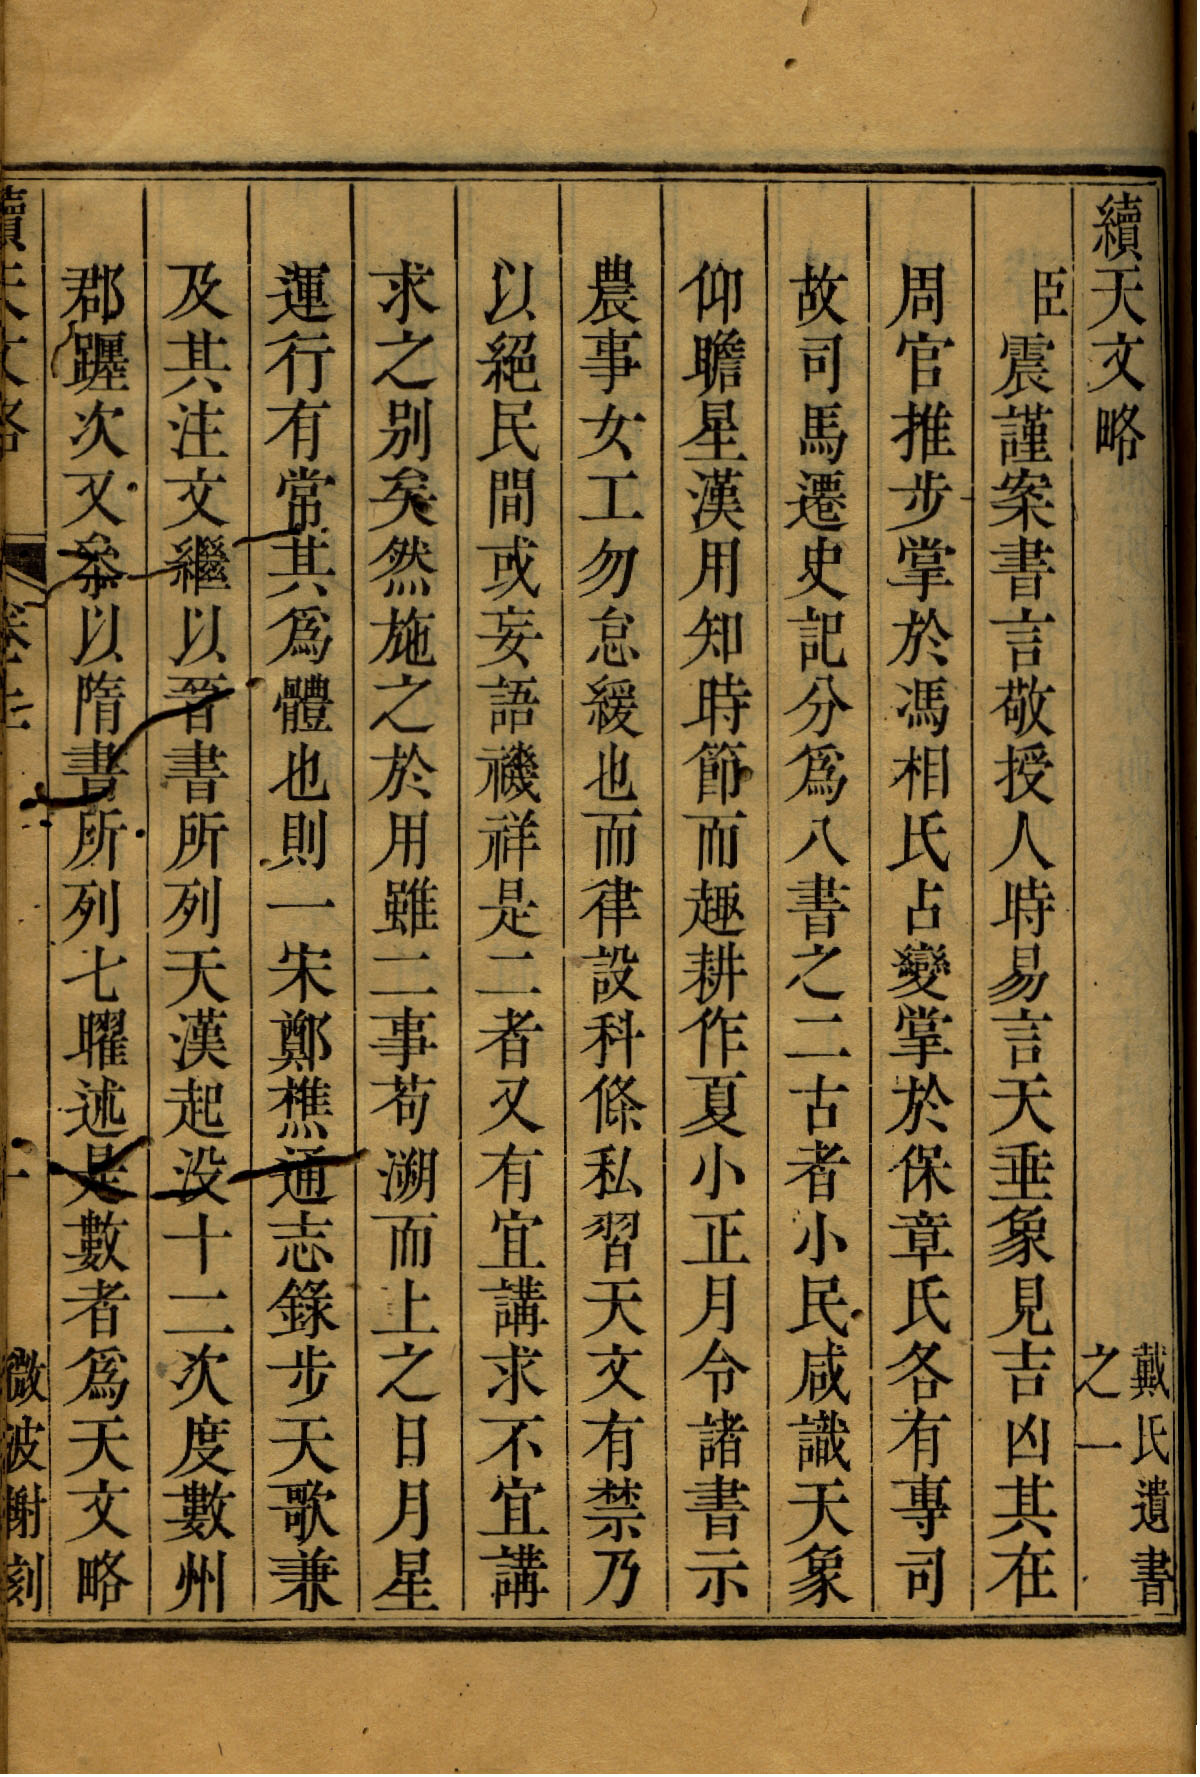 續天文略
戴氏遺書
之一
臣震謹案書言敬授人時易言天垂象見吉凶其在
周官推步掌於馮相氏占變掌於保章氏各有專司
故司馬遷史記分爲八書之二古者小民咸識天象
仰瞻星漢用知時節而趣耕作夏小正月令諸書示
農事女工勿怠緩也而律設科條私習天文有禁乃
以絕民間或妄語禨祥是二者又有宜講求不宜講
求之别矣然施之於用雖二事苟溯而上之日月星
運行有常其爲體也則一宋鄭樵通志錄步天歌兼
及其注文繼以晉書所列天漢起没十二次度數州
郡躔次又叅以隋書所列七曜述是數者爲天文略
續天文略
卷上
一
微波榭刻